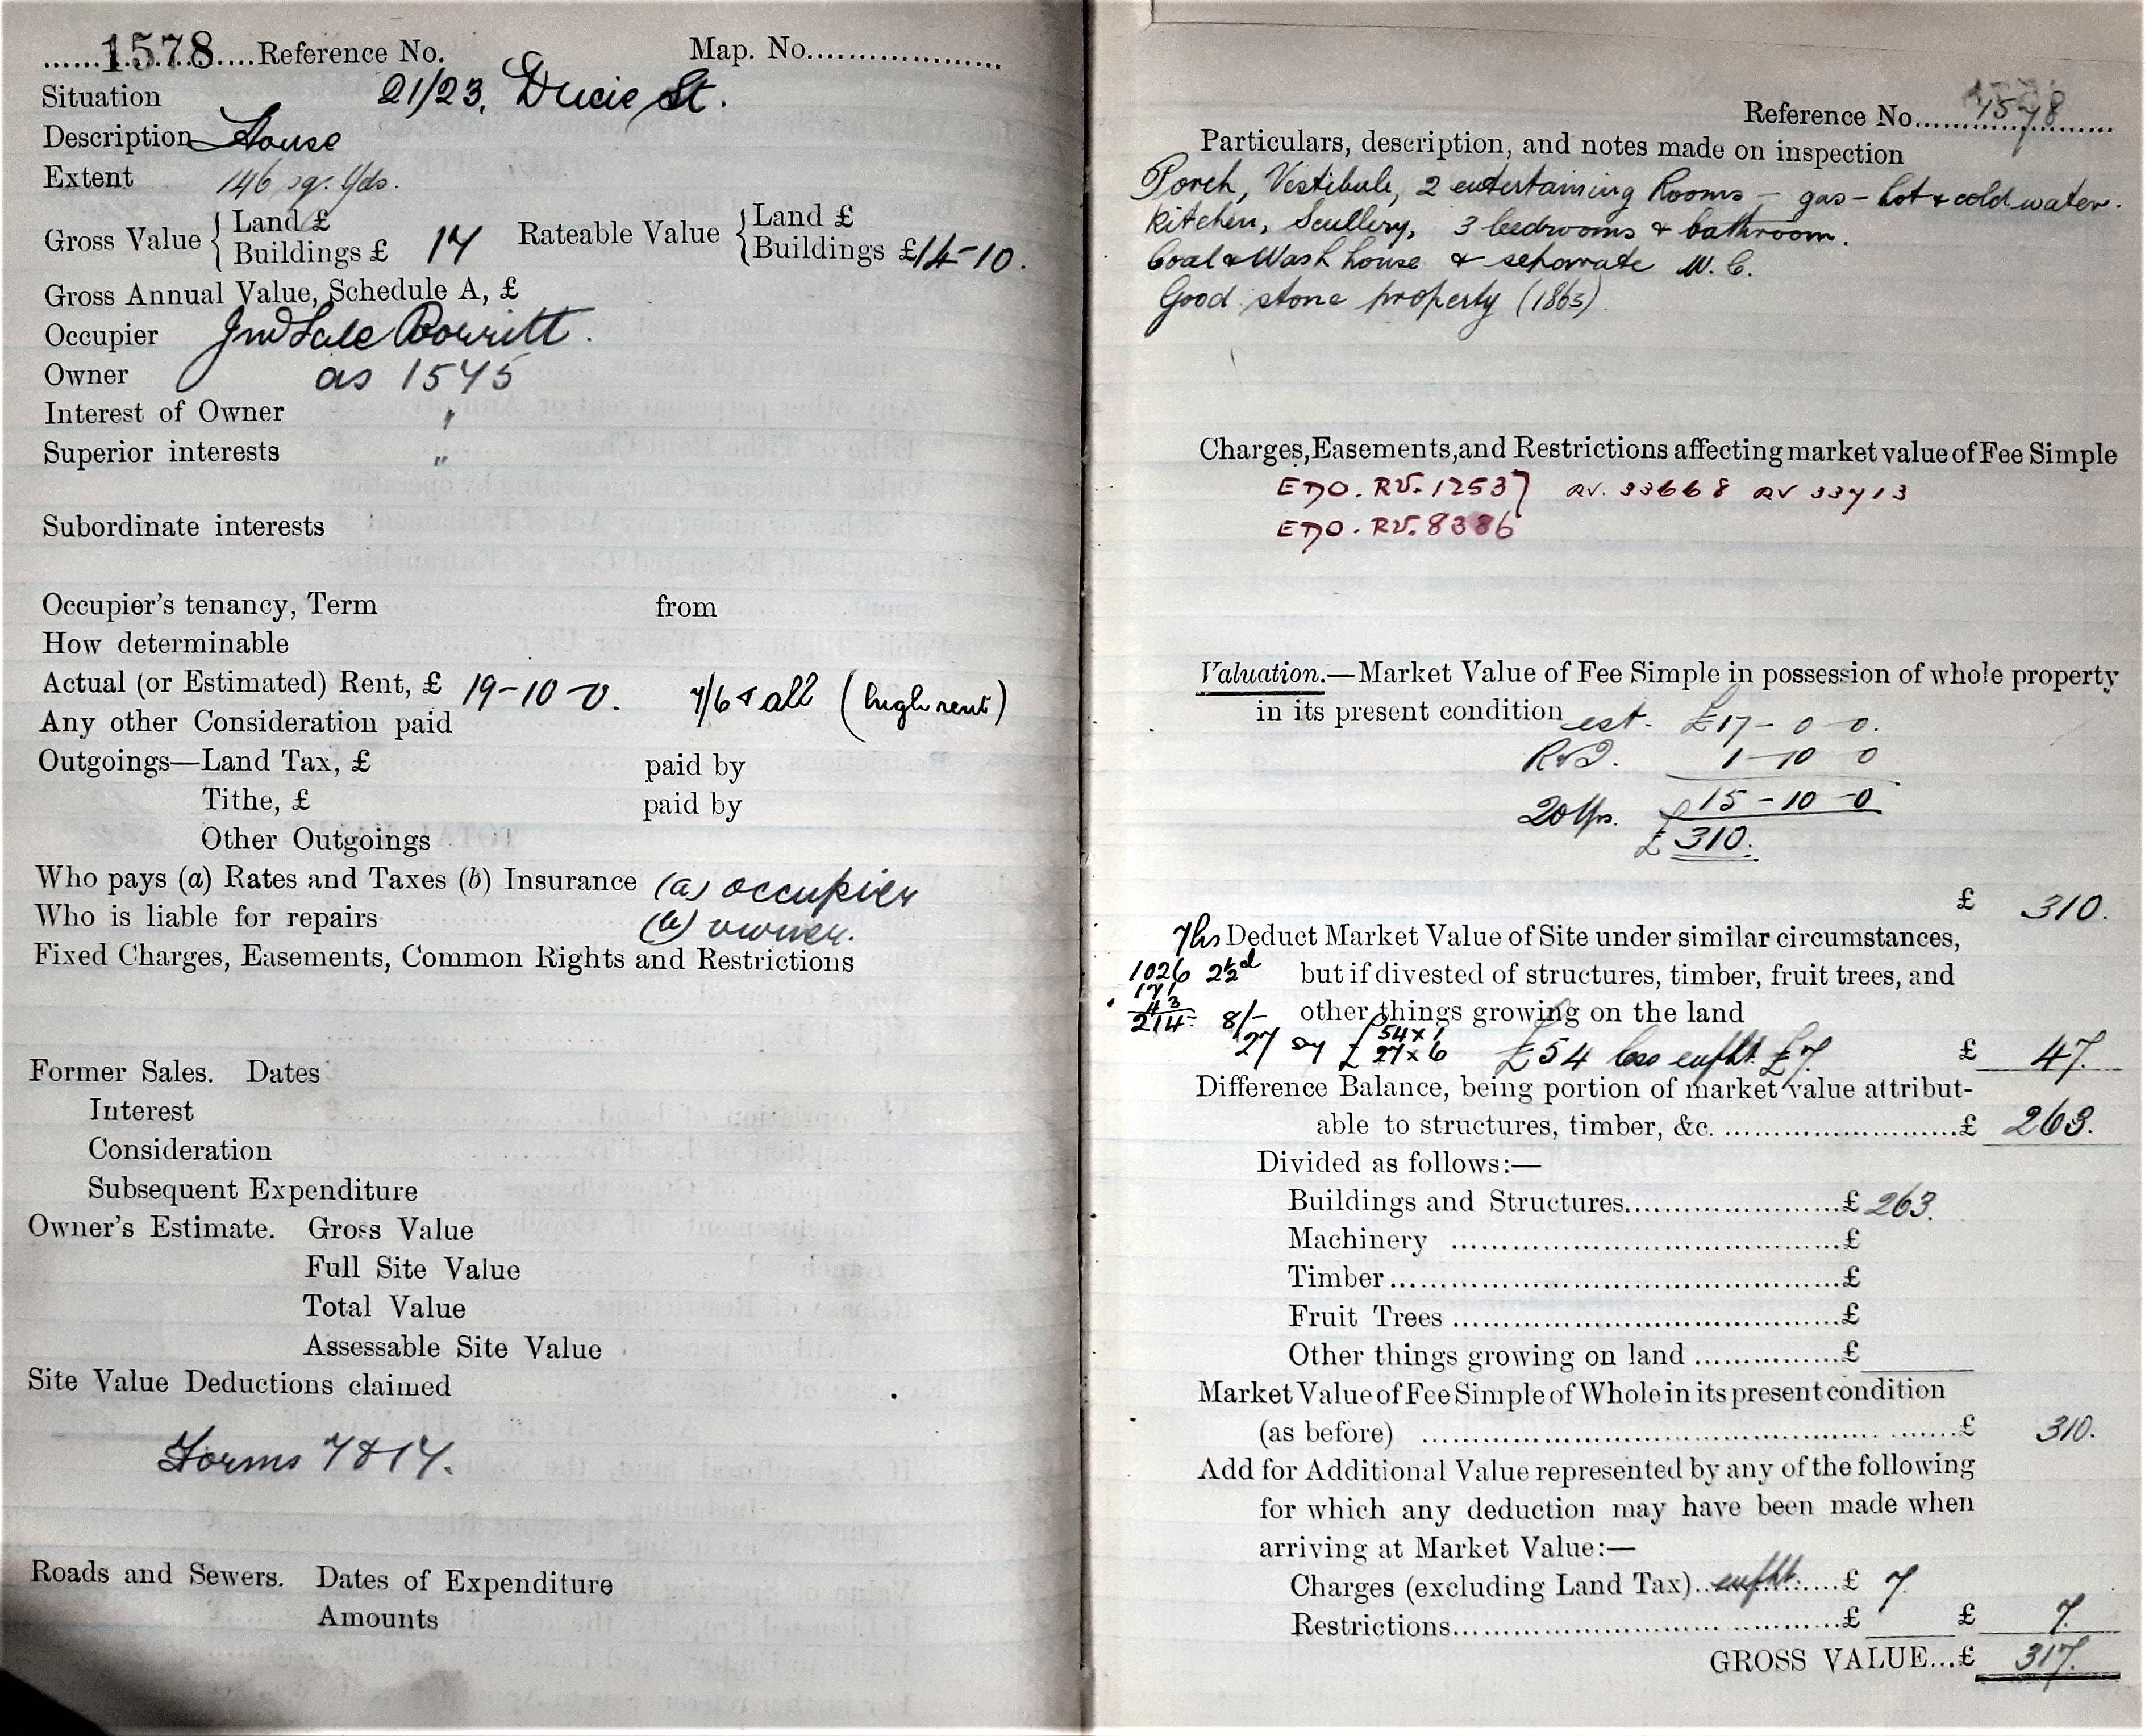 1578 Reference No. Map. No.
Situation 21/23, Ducie St.
Description House
Extent 146 sq. yds.
Gross Value { Land £ Rateable Value { Land £
Buildings £ 17 Buildings £ 14-10.
Gross Annual Value, Schedule A, £
Occupier Jno Sale Bowritt.
Owner as 1575
Interest of Owner "
Superior interests "
Subordinate interests
Occupier's tenancy, Term from
How determinable
Actual (or Estimated) Rent, £ 19-10-0. 7/6 & all (high rent)
Any other Consideration paid
Outgoings—Land Tax, £ paid by
Tithe, £ paid by
Other Outgoings
Who pays (a) Rates and Taxes (b) Insurance (a) occupier
Who is liable for repairs (b) owner.
Fixed Charges, Easements, Common Rights and Restrictions
Former Sales. Dates
Interest
Consideration
Subsequent Expenditure
Owner's Estimate. Gross Value
Full Site Value
Total Value
Assessable Site Value
Site Value Deductions claimed
Forms 7 & 17.
Roads and Sewers. Dates of Expenditure
Amounts
Reference No. 1578
Particulars, description, and notes made on inspection
Porch, Vestibule, 2 entertaining Rooms - gas - hot & cold water.
Kitchen, Scullery, 3 bedrooms & bathroom.
Coal & Wash house & separate W.C.
Good stone property (1863)
Charges, Easements, and Restrictions affecting market value of Fee Simple
EDO. RV. 12537 RV. 33668 RV 33713
EDO. RV. 8386
Valuation.—Market Value of Fee Simple in possession of whole property
in its present condition est. £17-0-0.
1-10 0
20 Yrs. £15-10-0
£310.
£ 310.
Deduct Market Value of Site under similar circumstances,
1026 2½d but if divested of structures, timber, fruit trees, and
171
43 other things growing on the land
214 8/-
27 say £ 54 x 1
27 x 6 £54 less £7. £ 47.
Difference Balance, being portion of market value attribut-
able to structures, timber, &c. £ 263.
Divided as follows:—
Buildings and Structures £ 263.
Machinery £
Timber £
Fruit Trees £
Other things growing on land £
Market Value of Fee Simple of Whole in its present condition
(as before) £ 310.
Add for Additional Value represented by any of the following
for which any deduction may have been made when
arriving at Market Value:—
Charges (excluding Land Tax) £ 7
Restrictions £ £ 7.
GROSS VALUE...£ 317.